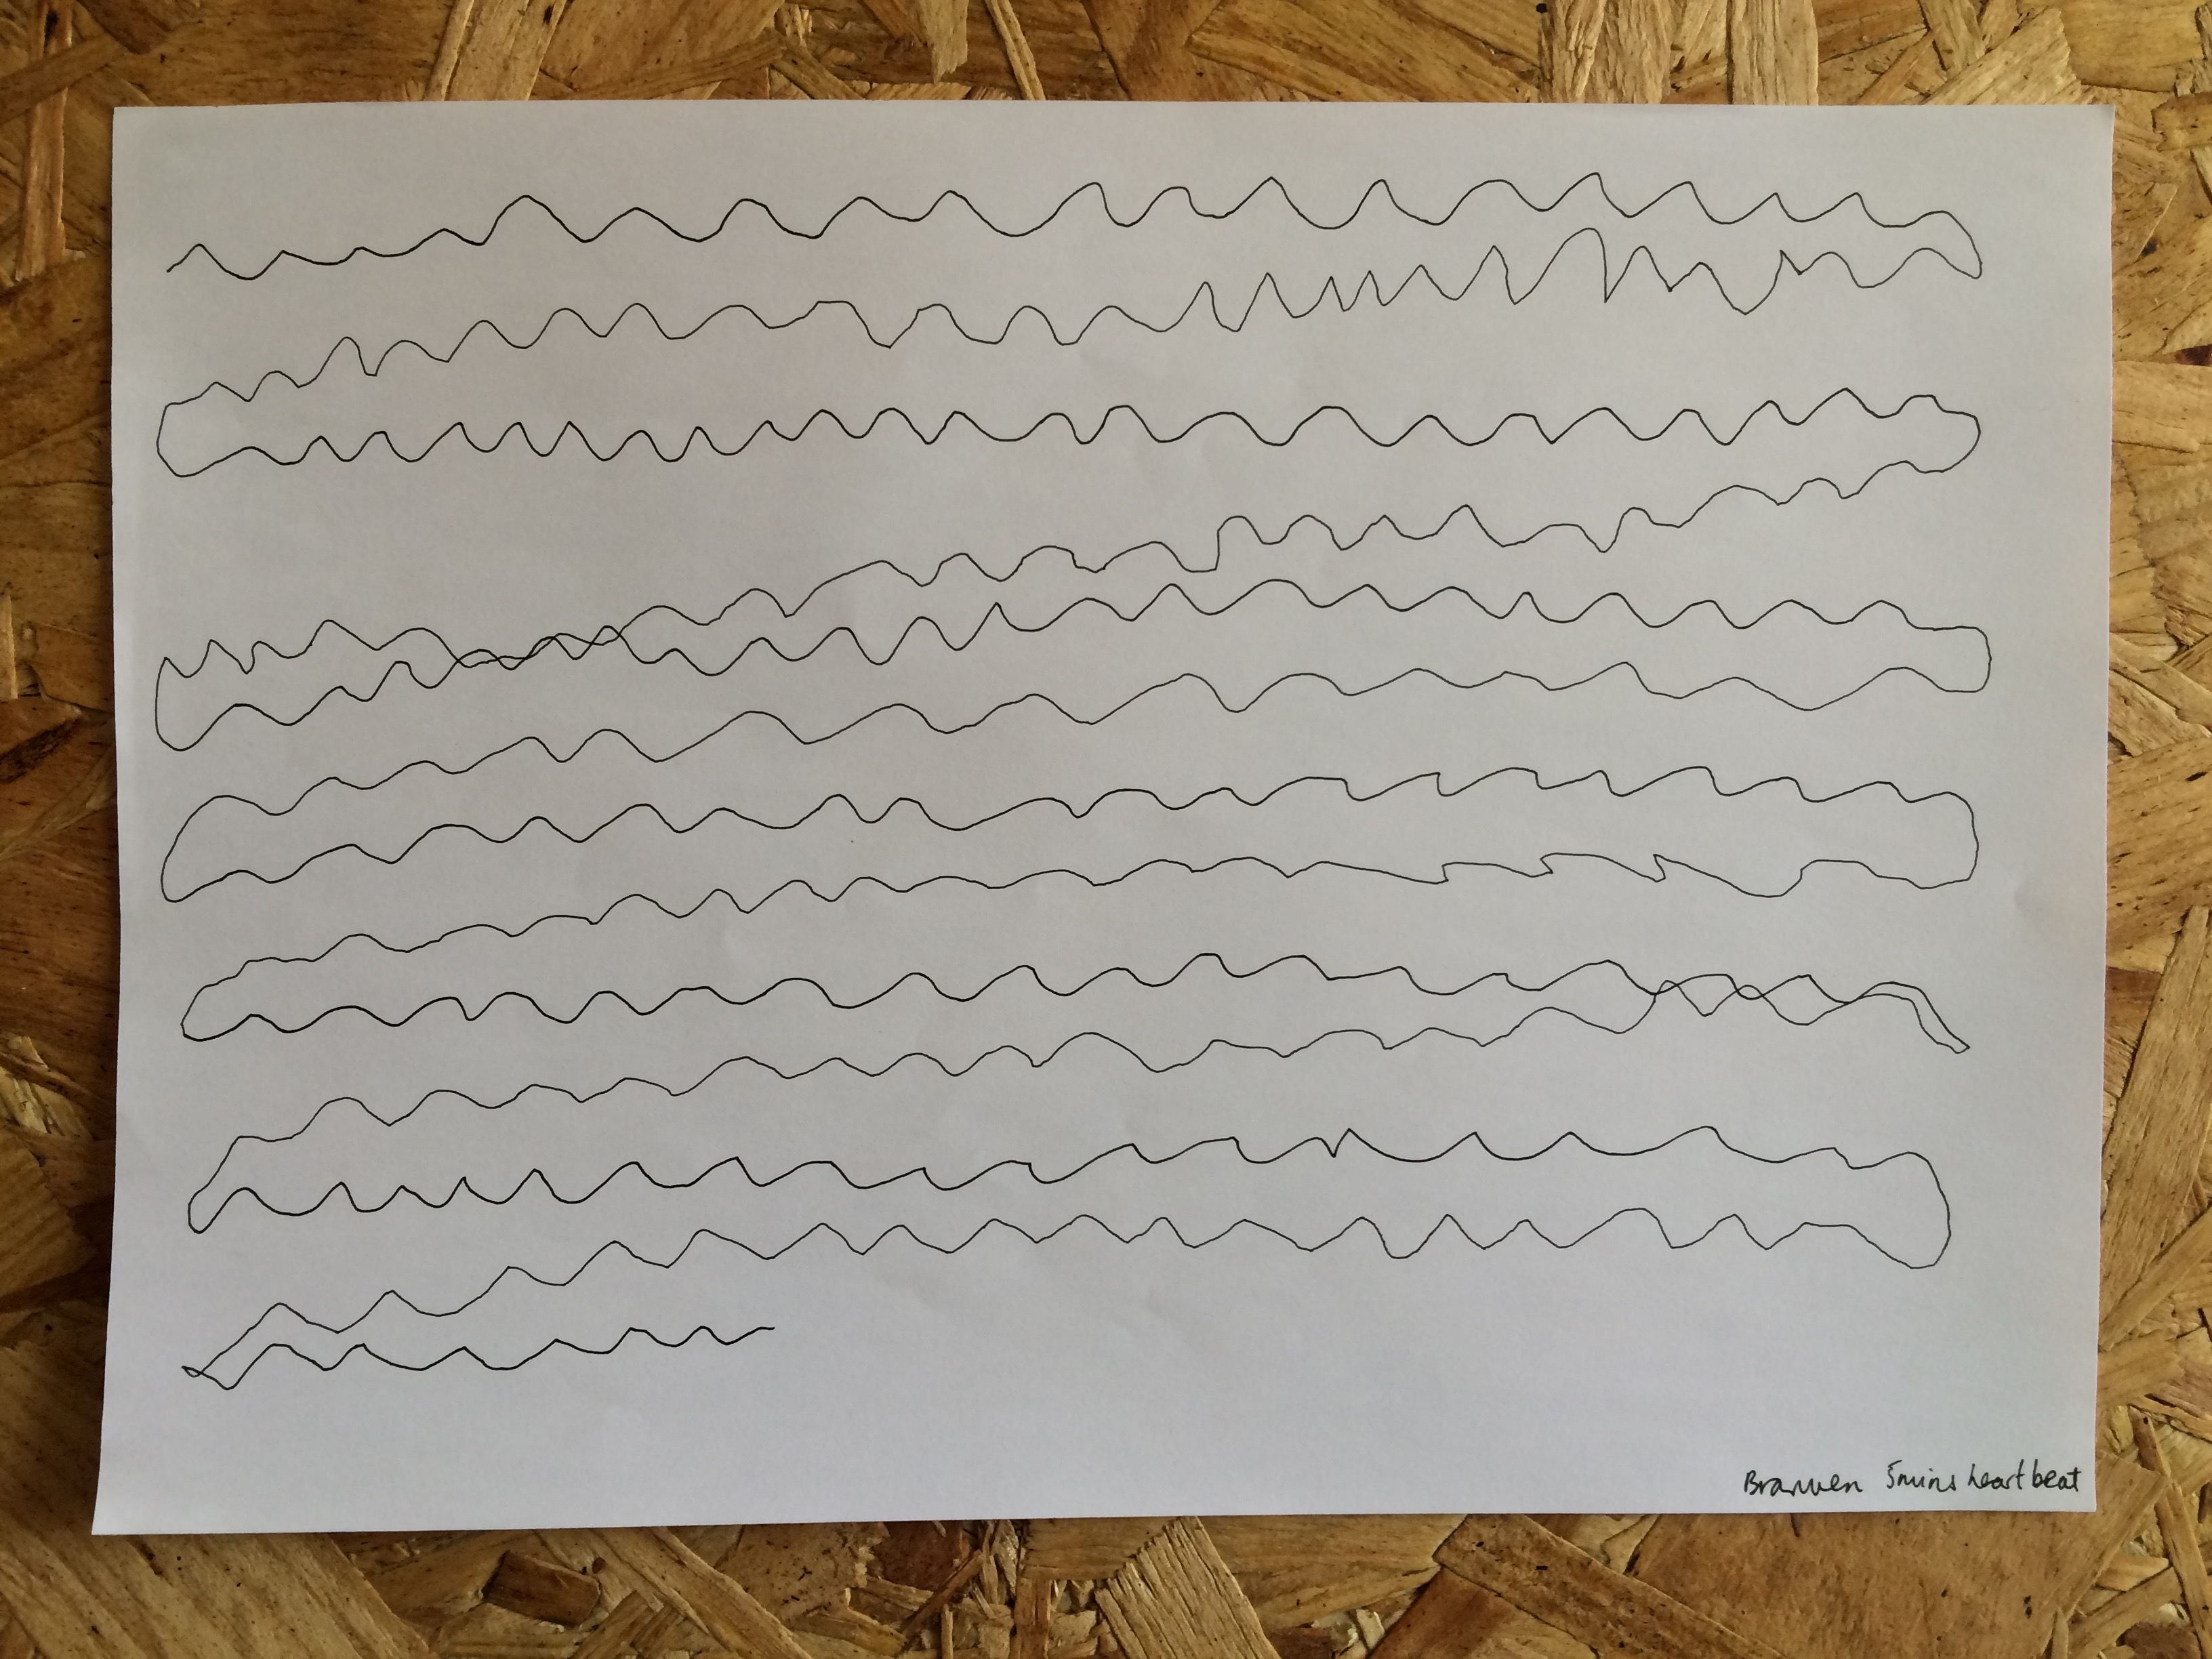 Branwen 5mins heart beat